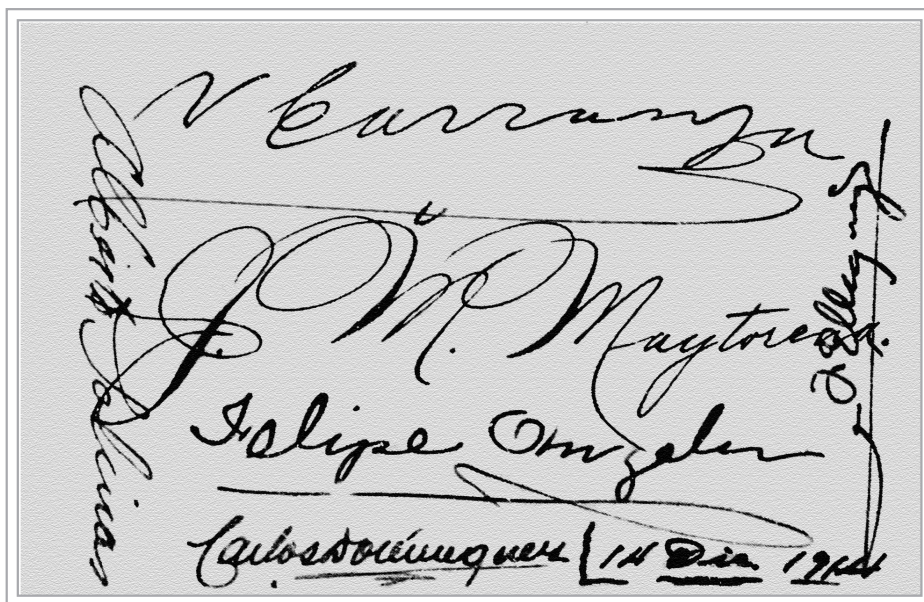 V Carranza
J. M. Maytorena.
Felipe Gonzalez
Carlos Dominguez
14 Dic 1914
Albino Salinas